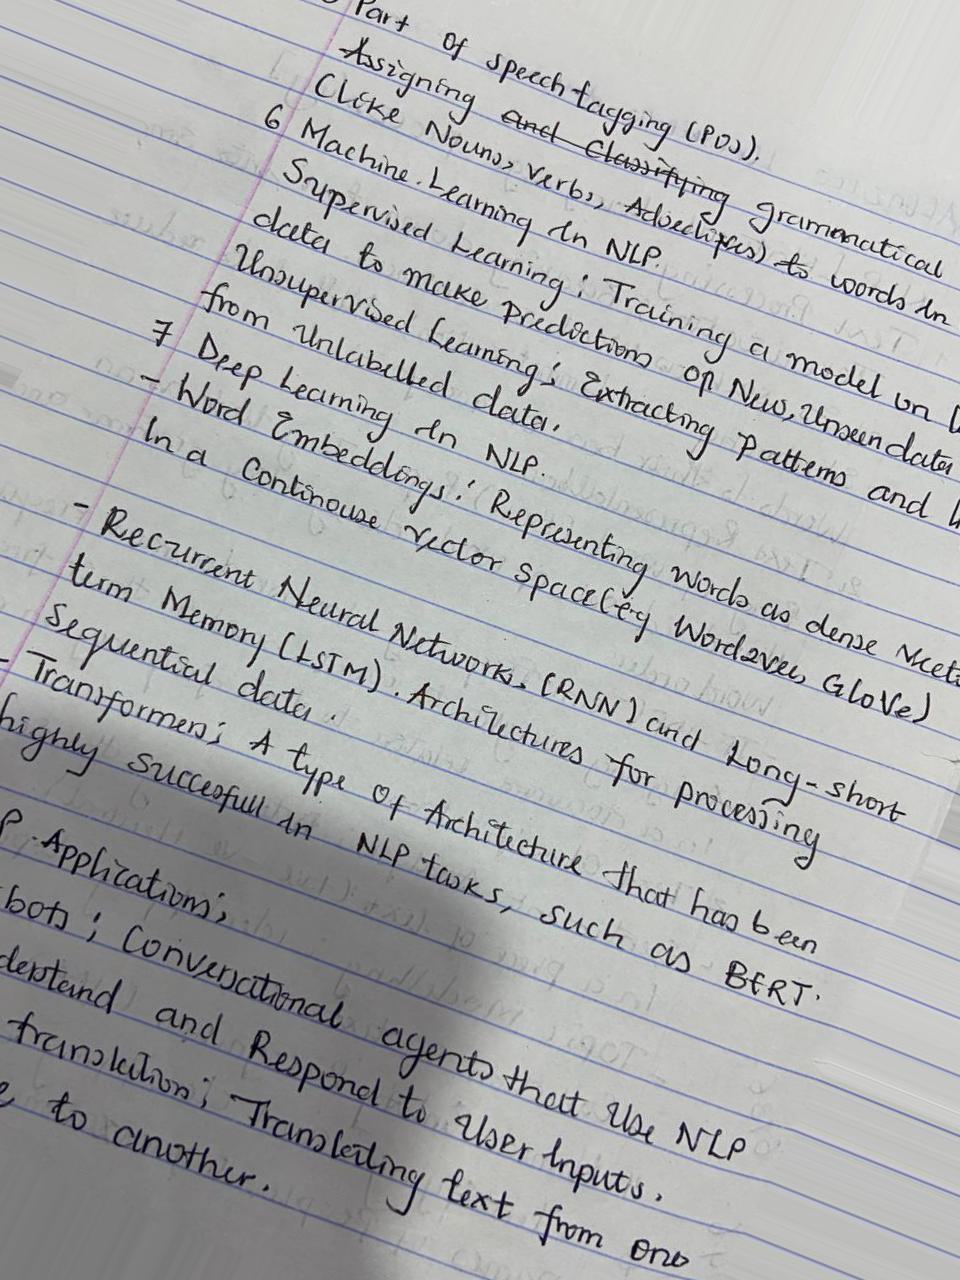 Part of speech tagging (POS).
Assigning and Classifying grammatical
(Like Nouns, verbs, Adjectives) to words in
6 Machine. Learning in NLP.
Supervised Learning; Training a model on
data to make predictions on New, Unseen data
Unsupervised Learning; Extracting patterns and
from Unlabelled data.
7 Deep Learning in NLP.
- Word Embeddings: Representing words as dense
In a Continouse vector space(eg Word2vec, GloVe)
- Recurrent Neural Networks, (RNN) and Long-short
term Memory (LSTM). Architectures for processing
Sequential data.
- Transformers; A type of Architecture that has been
highly Successfull in NLP tasks, such as BERT.
P. Applications;
bots; Conversational agents that Use NLP
and Respond to User Inputs.
translation; Translating text from one
to another.